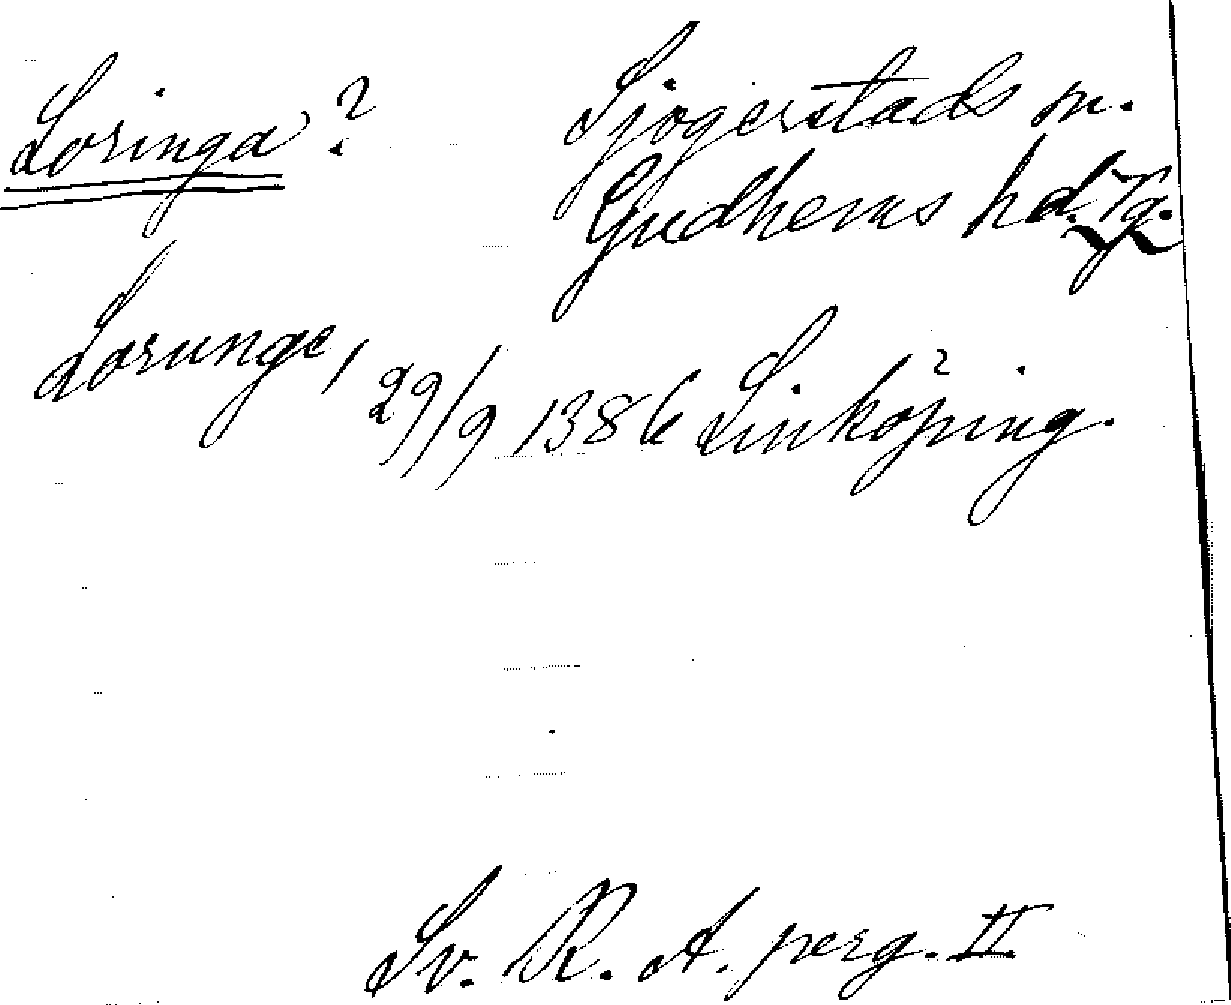 Loringa?
Sjogerstads sn.
Gudhems hd. Vg.
Lorunge, 29/9 1386 Linköping.
Sv. R. A. perg. II.